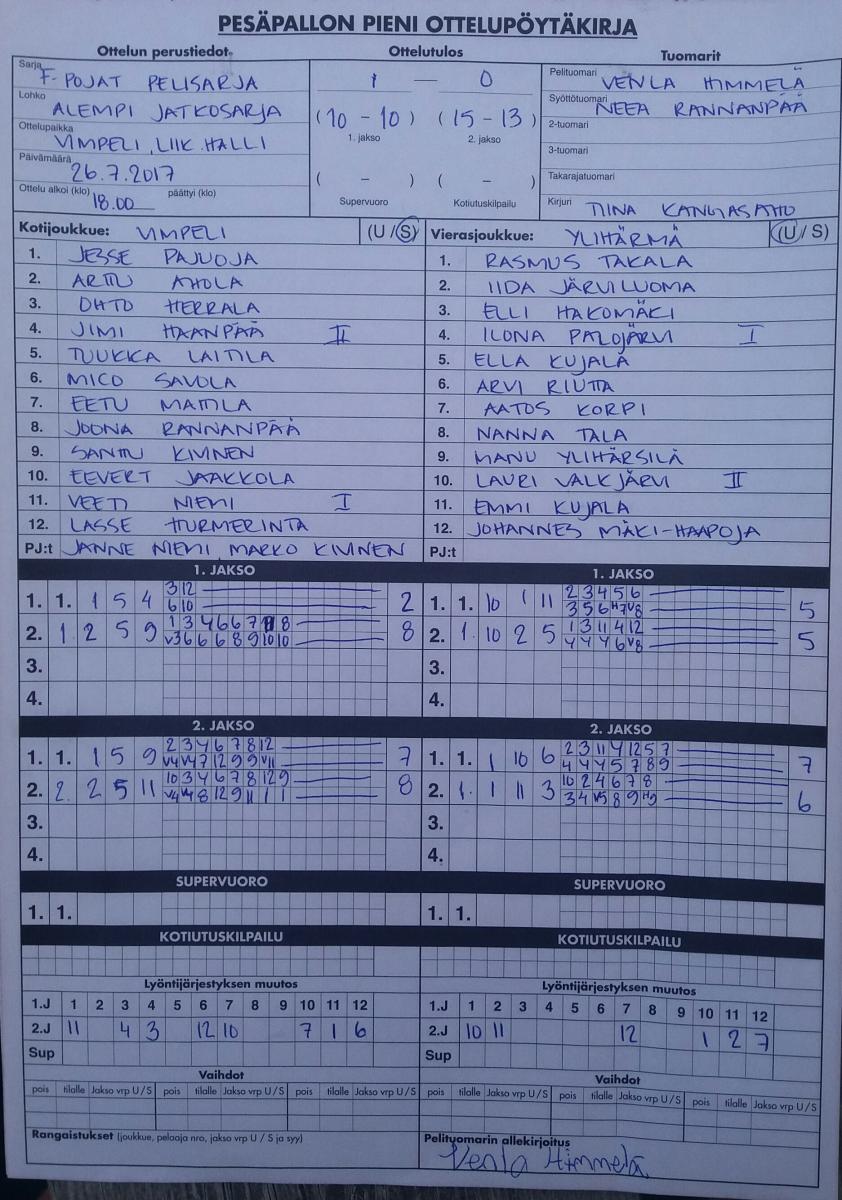 PESÄPALLON PIENI OTTELUPÖYTÄKIRJA
Ottelun perustiedot
Ottelutulos
Tuomarit
Sarja F-POJAT PELISARJA
Lohko ALEMPI JATKOSARJA
Ottelupaikka VIMPELI, LIIK.HALLI
Päivämäärä 26.7.2017
Ottelu alkoi (klo) 18.00 päättyi (klo)
1 — 0
(10 - 10) (15 - 13)
1. jakso 2. jakso
( - ) ( - )
Supervuoro Kotiutuskilpailu
Pelituomari VENLA HIMMELÄ
Syöttötuomari NEEA RANNANPÄÄ
2-tuomari
3-tuomari
Takarajatuomari
Kirjuri TIINA KANGASAHO
Kotijoukkue: VIMPELI (U/S)
1. JESSE PAJUOJA
2. ARTTU AHOLA
3. OHTO HERRALA
4. JIMI HAANPÄÄ II
5. TUUKKA LAITILA
6. MICO SAVOLA
7. EETU MATTILA
8. JOONA RANNANPÄÄ
9. SANTTU KIVINEN
10. EEVERT JAAKKOLA
11. VEETI NIEMI I
12. LASSE HURMERINTA
PJ:t JANNE NIEMI, MARKO KIVINEN
Vierasjoukkue: YLIHÄRMÄ (U/S)
1. RASMUS TAKALA
2. IIDA JÄRVILUOMA
3. ELLI HAKOMÄKI
4. ILONA PALOJÄRVI I
5. ELLA KUJALA
6. ARVI RIUTTA
7. AATOS KORPI
8. NANNA TALA
9. MANU YLIHÄRSILÄ
10. LAURI VALKJÄRVI II
11. EMMI KUJALA
12. JOHANNES MÄKI-HAAPOJA
PJ:t
1. JAKSO
1. 1. 1 5 4 3 12 2
6 10
2. 1 2 5 9 1 3 4 6 6 7 8 8
V3 6 6 6 8 9 10 10
3.
4.
1. JAKSO
1. 1. 10 1 11 2 3 4 5 6 5
3 5 6 H7 V8
2. 1. 10 2 5 1 3 11 4 12 5
4 4 4 6 V8
3.
4.
2. JAKSO
1. 1. 1 5 9 2 3 4 6 7 8 12 7
V4 V4 7 12 9 9 V11
2. 2. 2 5 11 10 3 4 6 7 8 12 9 8
V4 V4 8 12 9 11 1 1
3.
4.
2. JAKSO
1. 1. 1 10 6 2 3 11 4 12 5 7 7
4 4 4 5 7 8 9
2. 1. 1 11 3 10 2 4 6 7 8 6
3 4 V5 8 9 H9
3.
4.
SUPERVUORO
1. 1.
SUPERVUORO
1. 1.
KOTIUTUSKILPAILU
KOTIUTUSKILPAILU
Lyöntijärjestyksen muutos
1.J 1 2 3 4 5 6 7 8 9 10 11 12
2.J 11 4 3 12 10 7 1 6
Sup
Lyöntijärjestyksen muutos
1.J 1 2 3 4 5 6 7 8 9 10 11 12
2.J 10 11 12 1 2 7
Sup
Vaihdot
pois tilalle Jakso vrp U/S pois tilalle Jakso vrp U/S pois tilalle Jakso vrp U/S
Vaihdot
pois tilalle Jakso vrp U/S pois tilalle Jakso vrp U/S pois tilalle Jakso vrp U/S
Rangaistukset (joukkue, pelaaja nro, jakso vrp U / S ja syy)
Pelituomarin allekirjoitus
Venla Himmelä